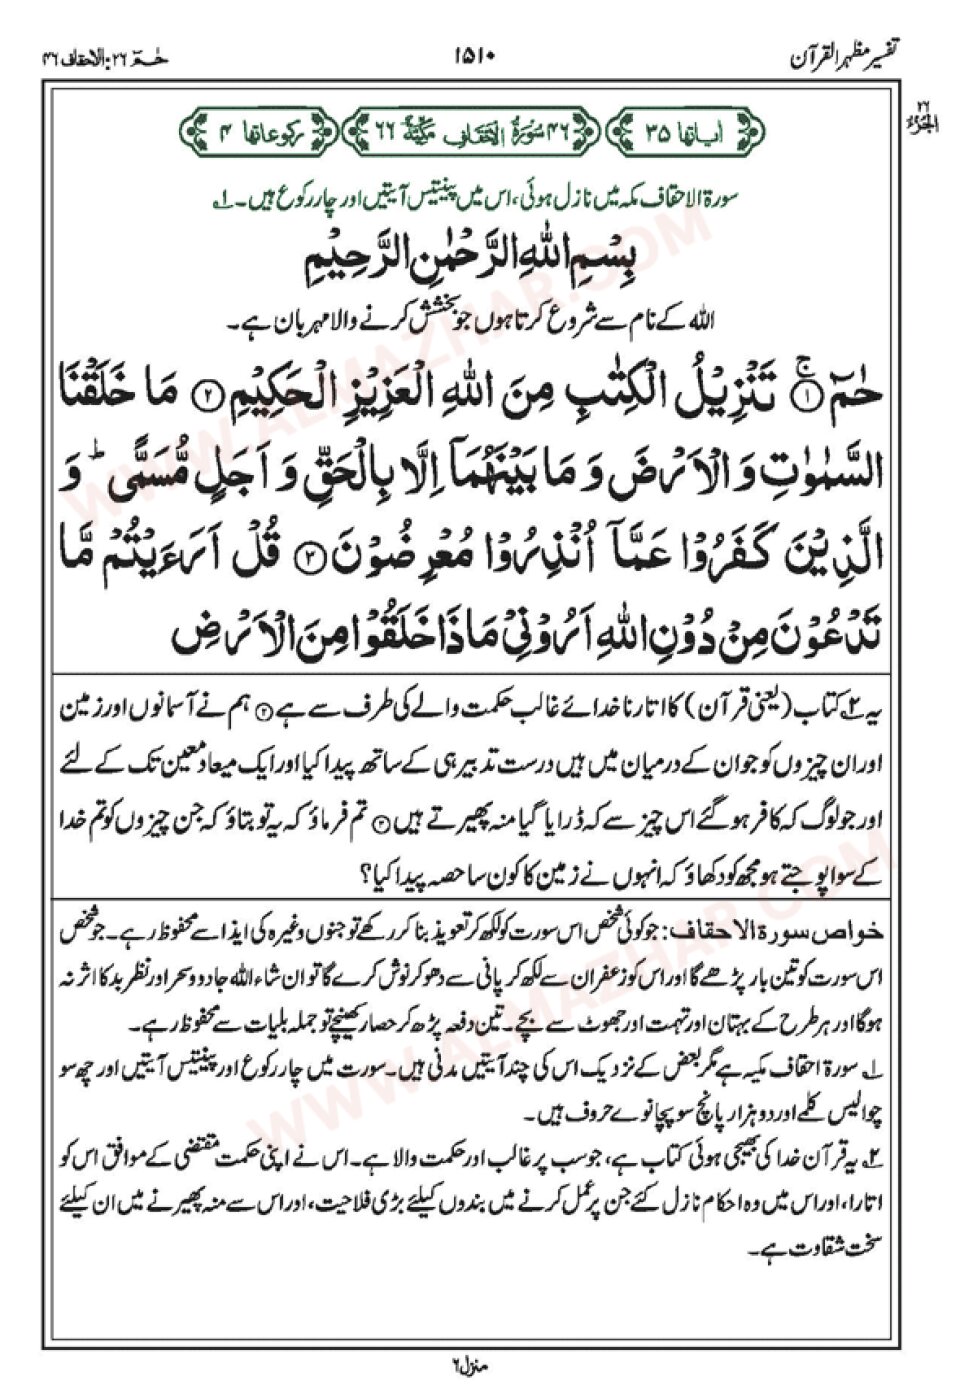 تفسیر مظہر القرآن
۱۵۱۰
حٰمٓ ۲۶: الاحقاف ۴۶
۲۶
الجزء
اٰیاتها ۳۵
۴۶ سُوْرَةُ الْاَحْقَافِ مَكِّيَّةٌ ۶۶
ركوعاتها ۴
سورۃ الاحقاف مکہ میں نازل ہوئی، اس میں پینتیس آیتیں اور چار رکوع ہیں۔ ۱؎
بِسْمِ اللهِ الرَّحْمٰنِ الرَّحِيْمِ
اللہ کے نام سے شروع کرتا ہوں جو بخشش کرنے والا مہربان ہے۔
حٰمٓ ۚ﴿۱﴾ تَنْزِيْلُ الْكِتٰبِ مِنَ اللهِ الْعَزِيْزِ الْحَكِيْمِ ﴿۲﴾ مَا خَلَقْنَا
السَّمٰوٰتِ وَ الْاَرْضَ وَ مَا بَيْنَهُمَاۤ اِلَّا بِالْحَقِّ وَ اَجَلٍ مُّسَمًّى ؕ وَ
الَّذِيْنَ كَفَرُوْا عَمَّاۤ اُنْذِرُوْا مُعْرِضُوْنَ ﴿۳﴾ قُلْ اَرَءَيْتُمْ مَّا
تَدْعُوْنَ مِنْ دُوْنِ اللهِ اَرُوْنِيْ مَاذَا خَلَقُوْا مِنَ الْاَرْضِ
یہ ۲؎ کتاب (یعنی قرآن) کا اتارنا خدائے غالب حکمت والے کی طرف سے ہے ﴿۲﴾ ہم نے آسمانوں اور زمین
اور ان چیزوں کو جو ان کے درمیان میں ہیں درست تدبیر ہی کے ساتھ پیدا کیا اور ایک میعاد معین تک کے لئے
اور جو لوگ کہ کافر ہوگئے اس چیز سے کہ ڈرایا گیا منہ پھیرتے ہیں ﴿۳﴾ تم فرماؤ کہ یہ تو بتاؤ کہ جن چیزوں کو تم خدا
کے سوا پوجتے ہو مجھ کو دکھاؤ کہ انہوں نے زمین کا کون سا حصہ پیدا کیا؟
خواص سورۃ الاحقاف: جو کوئی شخص اس سورت کو لکھ کر تعویذ بنا کر رکھے تو جنوں وغیرہ کی ایذا سے محفوظ رہے۔ جو شخص
اس سورت کو تین بار پڑھے گا اور اس کو زعفران سے لکھ کر پانی سے دھو کر نوش کرے گا تو ان شاء اللہ جادو و سحر اور نظر بد کا اثر نہ
ہوگا اور ہر طرح کے بہتان اور تہمت اور جھوٹ سے بچے۔ تین دفعہ پڑھ کر حصار کھینچے تو جملہ بلیات سے محفوظ رہے۔
۱؎ سورۃ احقاف مکیہ ہے مگر بعض کے نزدیک اس کی چند آیتیں مدنی ہیں۔ سورت میں چار رکوع اور پینتیس آیتیں اور چھ سو
چوالیس کلمے اور دو ہزار پانچ سو پچانوے حروف ہیں۔
۲؎ یہ قرآن خدا کی بھیجی ہوئی کتاب ہے، جو سب پر غالب اور حکمت والا ہے۔ اس نے اپنی حکمت مقتضی کے موافق اس کو
اتارا، اور اس میں وہ احکام نازل کئے جن پر عمل کرنے میں بندوں کیلئے بڑی فلاحیت، اور اس سے منہ پھیرنے میں ان کیلئے
سخت شقاوت ہے۔
منزل ۶
WWW.ALMAZHAR.COM
WWW.ALMAZHAR.COM